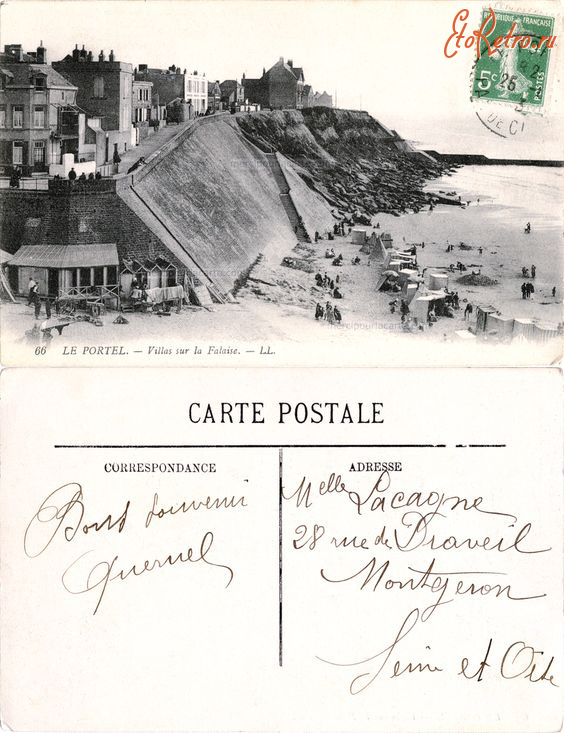 EtoRetro.ru
REPUBLIQUE FRANÇAISE
5c POSTES
25
DE C
mercipourlacarte
66 LE PORTEL. — Villas sur la Falaise. — LL.
CARTE POSTALE
CORRESPONDANCE
ADRESSE
Bons souvenir
Quernel
Melle Lacagne
28 rue de Draveil
Montgeron
Seine et Oise